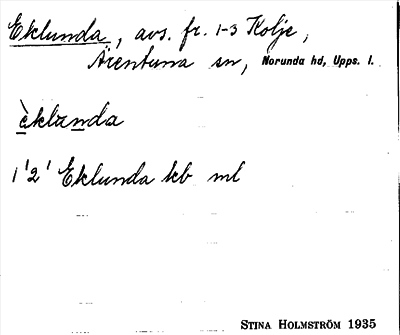 Eklunda, avs. fr. 1-3 Kolje,
Ärentuna sn, Norunda hd, Upps. l.
èklanda
1'2' Eklunda kb ml
STINA HOLMSTRÖM 1935